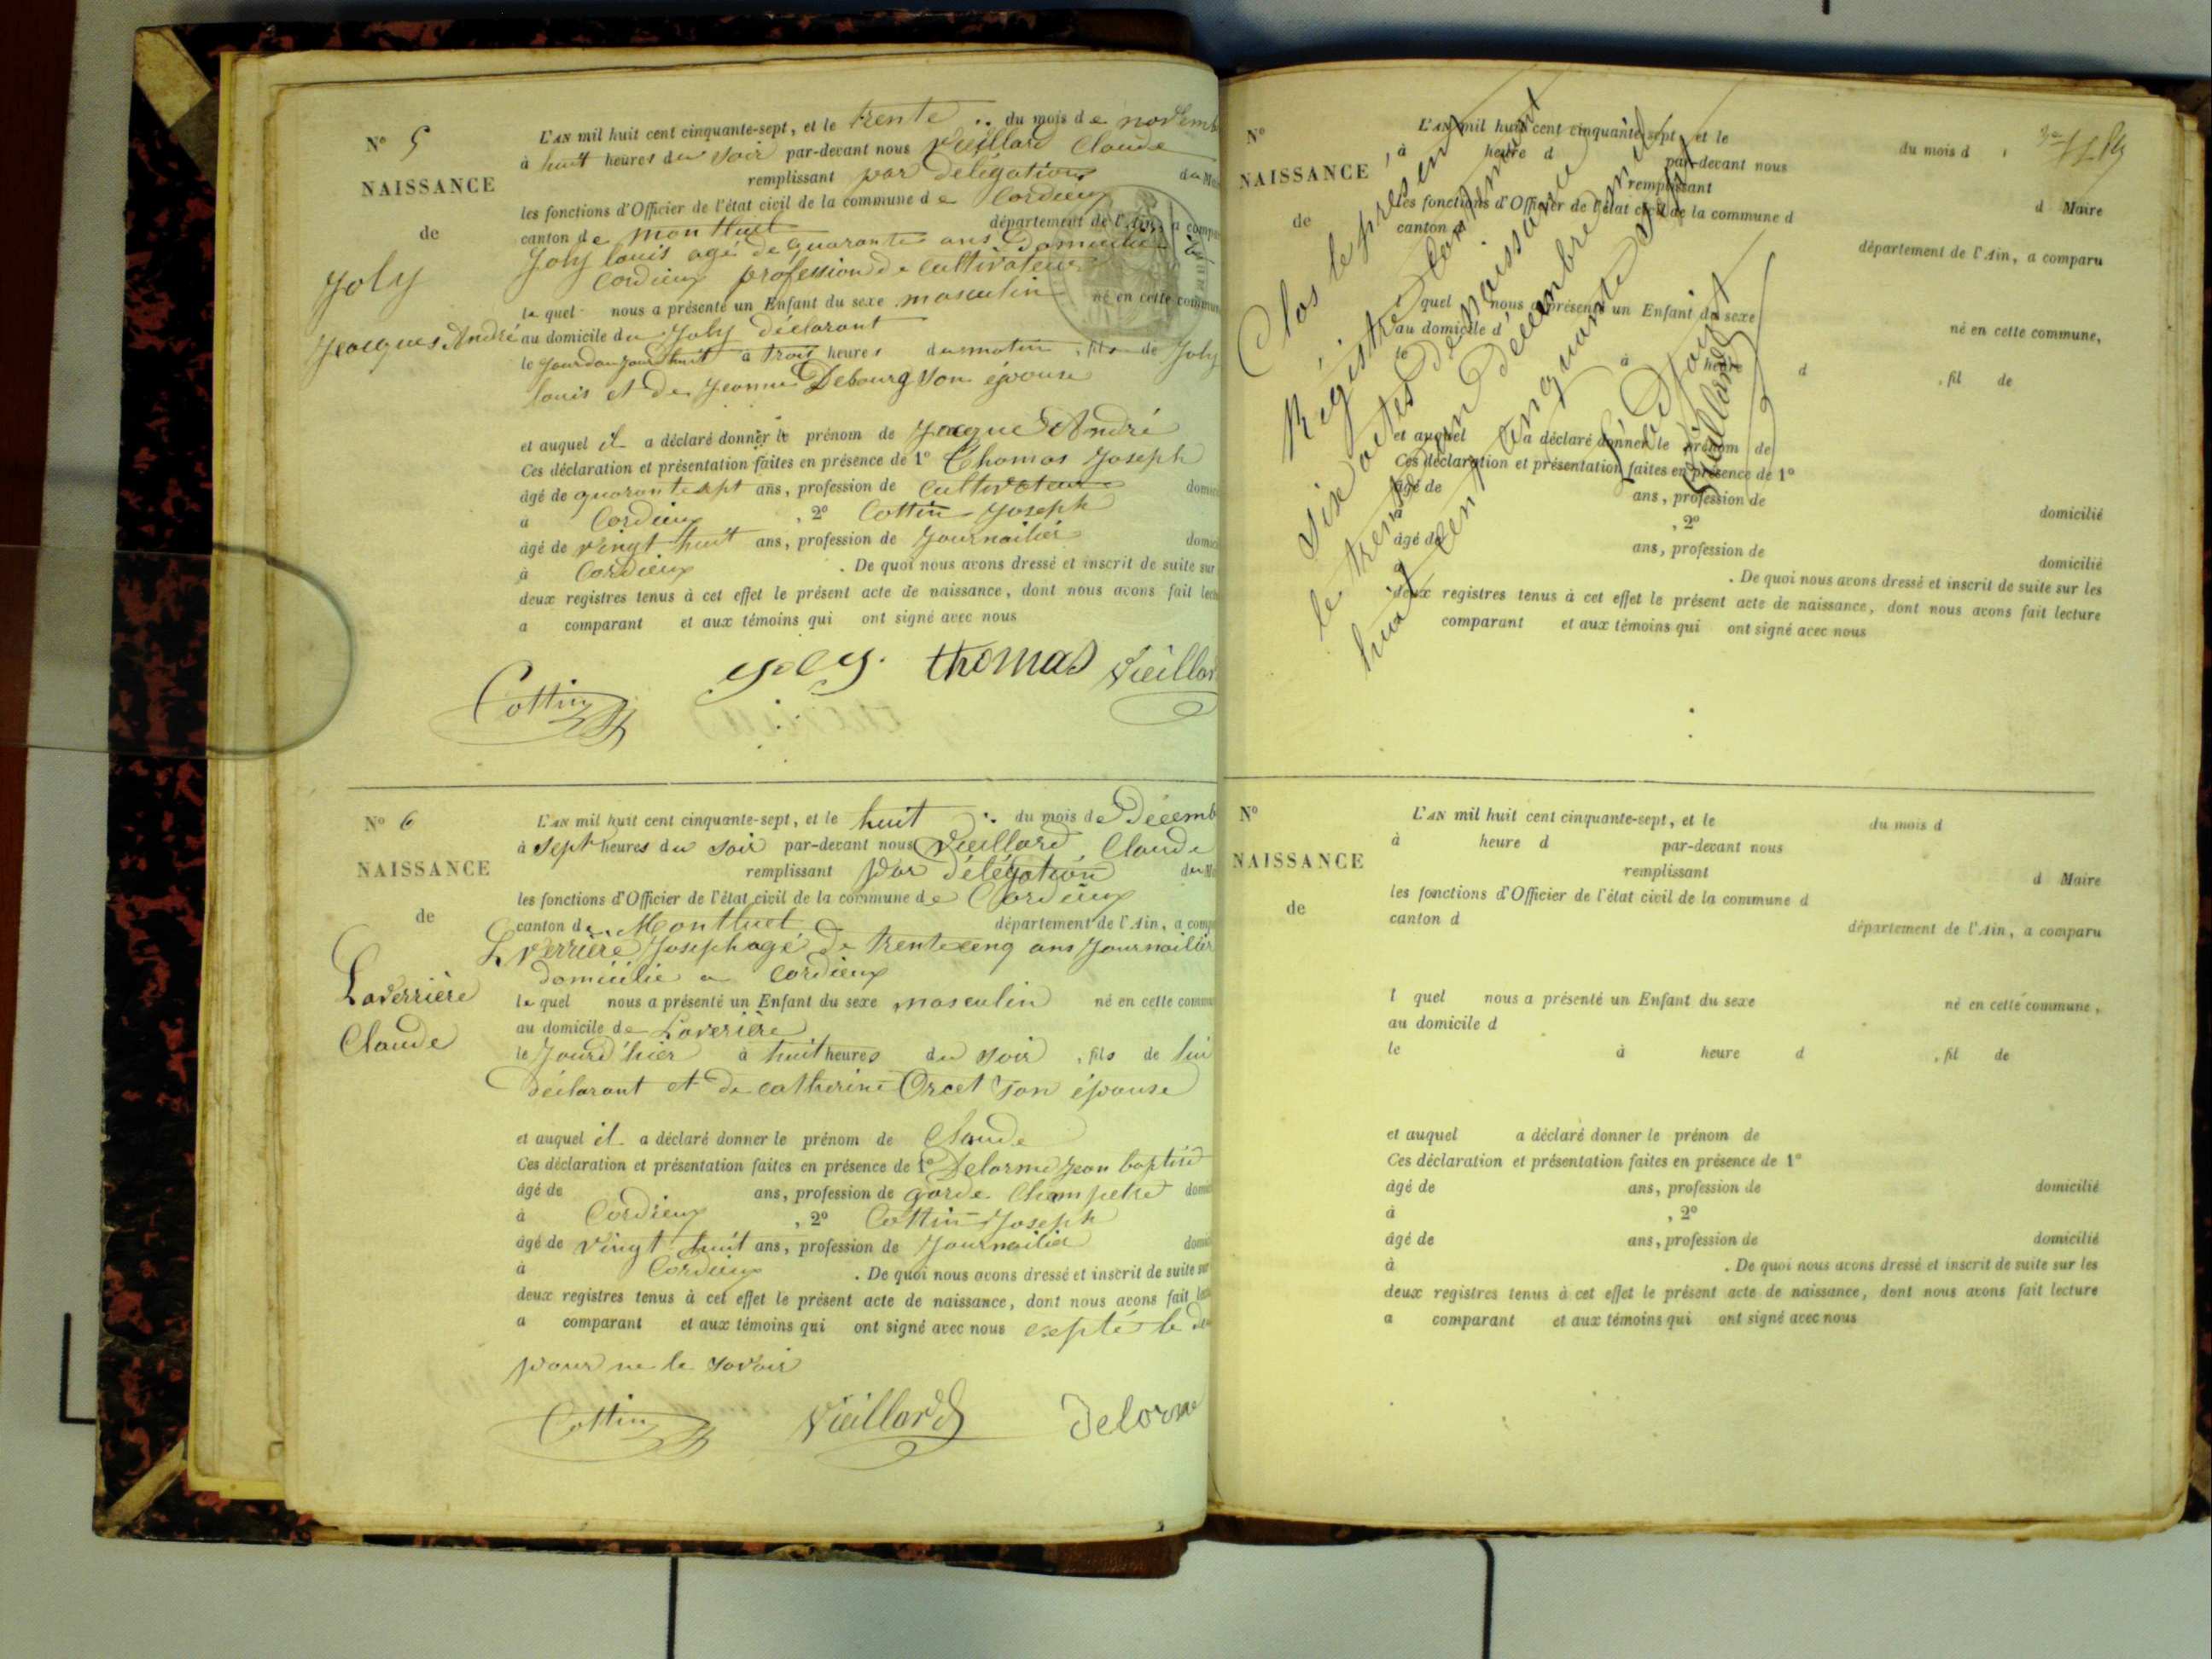 N° 5
NAISSANCE
de
Joly
Jacques André
L'AN mil huit cent cinquante-sept, et le trente du mois de novemb
à huit heures du soir par-devant nous Vieillard Claude
remplissant par délégation du Ma
les fonctions d'Officier de l'état civil de la commune de Cordieux
canton de Montluel département de l'Ain, a compa
Joly louis agé de quarante ans Domicilié
Cordieux profession de cultivateur
lequel nous a présenté un Enfant du sexe masculin né en cette commun
au domicile du Joly déclarant
le jourdaujourdhuit à trois heures du matin, fils de Joly
louis et de Jeanne Debourg son épouse
et auquel il a déclaré donner le prénom de Jacque André
Ces déclaration et présentation faites en présence de 1° Thomas Joseph
âgé de quarantesept ans, profession de cultivateur domi
à Cordieux, 2° Cottin Joseph
âgé de vingt huit ans, profession de Journailier domi
à Cordieux. De quoi nous avons dressé et inscrit de suite sur
deux registres tenus à cet effet le présent acte de naissance, dont nous avons fait lec
a comparant et aux témoins qui ont signé avec nous
joly. thomas Vieillar
Cottin
N° 6
NAISSANCE
de
Laverrière
Claude
L'AN mil huit cent cinquante-sept, et le huit du mois de Décemb
à Sept heures du soir par-devant nous Vieillard Claude
remplissant par délégation du M
les fonctions d'Officier de l'état civil de la commune de Cordieux
canton de Montluel département de l'Ain, a comp
Lverrière Joseph agé de trentecinq ans Journailier
domicilie a Cordieux
lequel nous a présenté un Enfant du sexe masculin né en cette commu
au domicile de Laverière
le Jourd'hier à huit heures du soir, fils de lui
déclarant et de catherine Orcet son épouse
et auquel il a déclaré donner le prénom de Claude
Ces déclaration et présentation faites en présence de 1° Delorme Jean baptiste
âgé de ans, profession de garde Champetre domi
à Cordieux, 2° Cottin Joseph
âgé de vingt huit ans, profession de Journailier domi
à Cordieux. De quoi nous avons dressé et inscrit de suite sur
deux registres tenus à cet effet le présent acte de naissance, dont nous avons fait lec
a comparant et aux témoins qui ont signé avec nous exepté le de
pour ne le savoir
Cottin Vieillard Delorme
N°
NAISSANCE
de
L'AN mil huit cent cinquante-sept, et le du mois d
à heure d par-devant nous
remplissant d Maire
les fonctions d'Officier de l'état civil de la commune d
canton d département de l'Ain, a comparu
l quel nous a présenté un Enfant du sexe né en cette commune,
au domicile d
le à heure d, fil de
et auquel a déclaré donner le prénom de
Ces déclaration et présentation faites en présence de 1°
âgé de ans, profession de domicilié
à, 2°
âgé de ans, profession de domicilié
à. De quoi nous avons dressé et inscrit de suite sur les
deux registres tenus à cet effet le présent acte de naissance, dont nous avons fait lecture
a comparant et aux témoins qui ont signé avec nous
Clos le présent
Régistre contenant
Six actes de naissance
le trente un Décembre mil
huit cent cinquante sept
L'adjoint
Vieillard
N°
NAISSANCE
de
L'AN mil huit cent cinquante-sept, et le du mois d
à heure d par-devant nous
remplissant d Maire
les fonctions d'Officier de l'état civil de la commune d
canton d département de l'Ain, a comparu
l quel nous a présenté un Enfant du sexe né en cette commune,
au domicile d
le à heure d, fil de
et auquel a déclaré donner le prénom de
Ces déclaration et présentation faites en présence de 1°
âgé de ans, profession de domicilié
à, 2°
âgé de ans, profession de domicilié
à. De quoi nous avons dressé et inscrit de suite sur les
deux registres tenus à cet effet le présent acte de naissance, dont nous avons fait lecture
a comparant et aux témoins qui ont signé avec nous